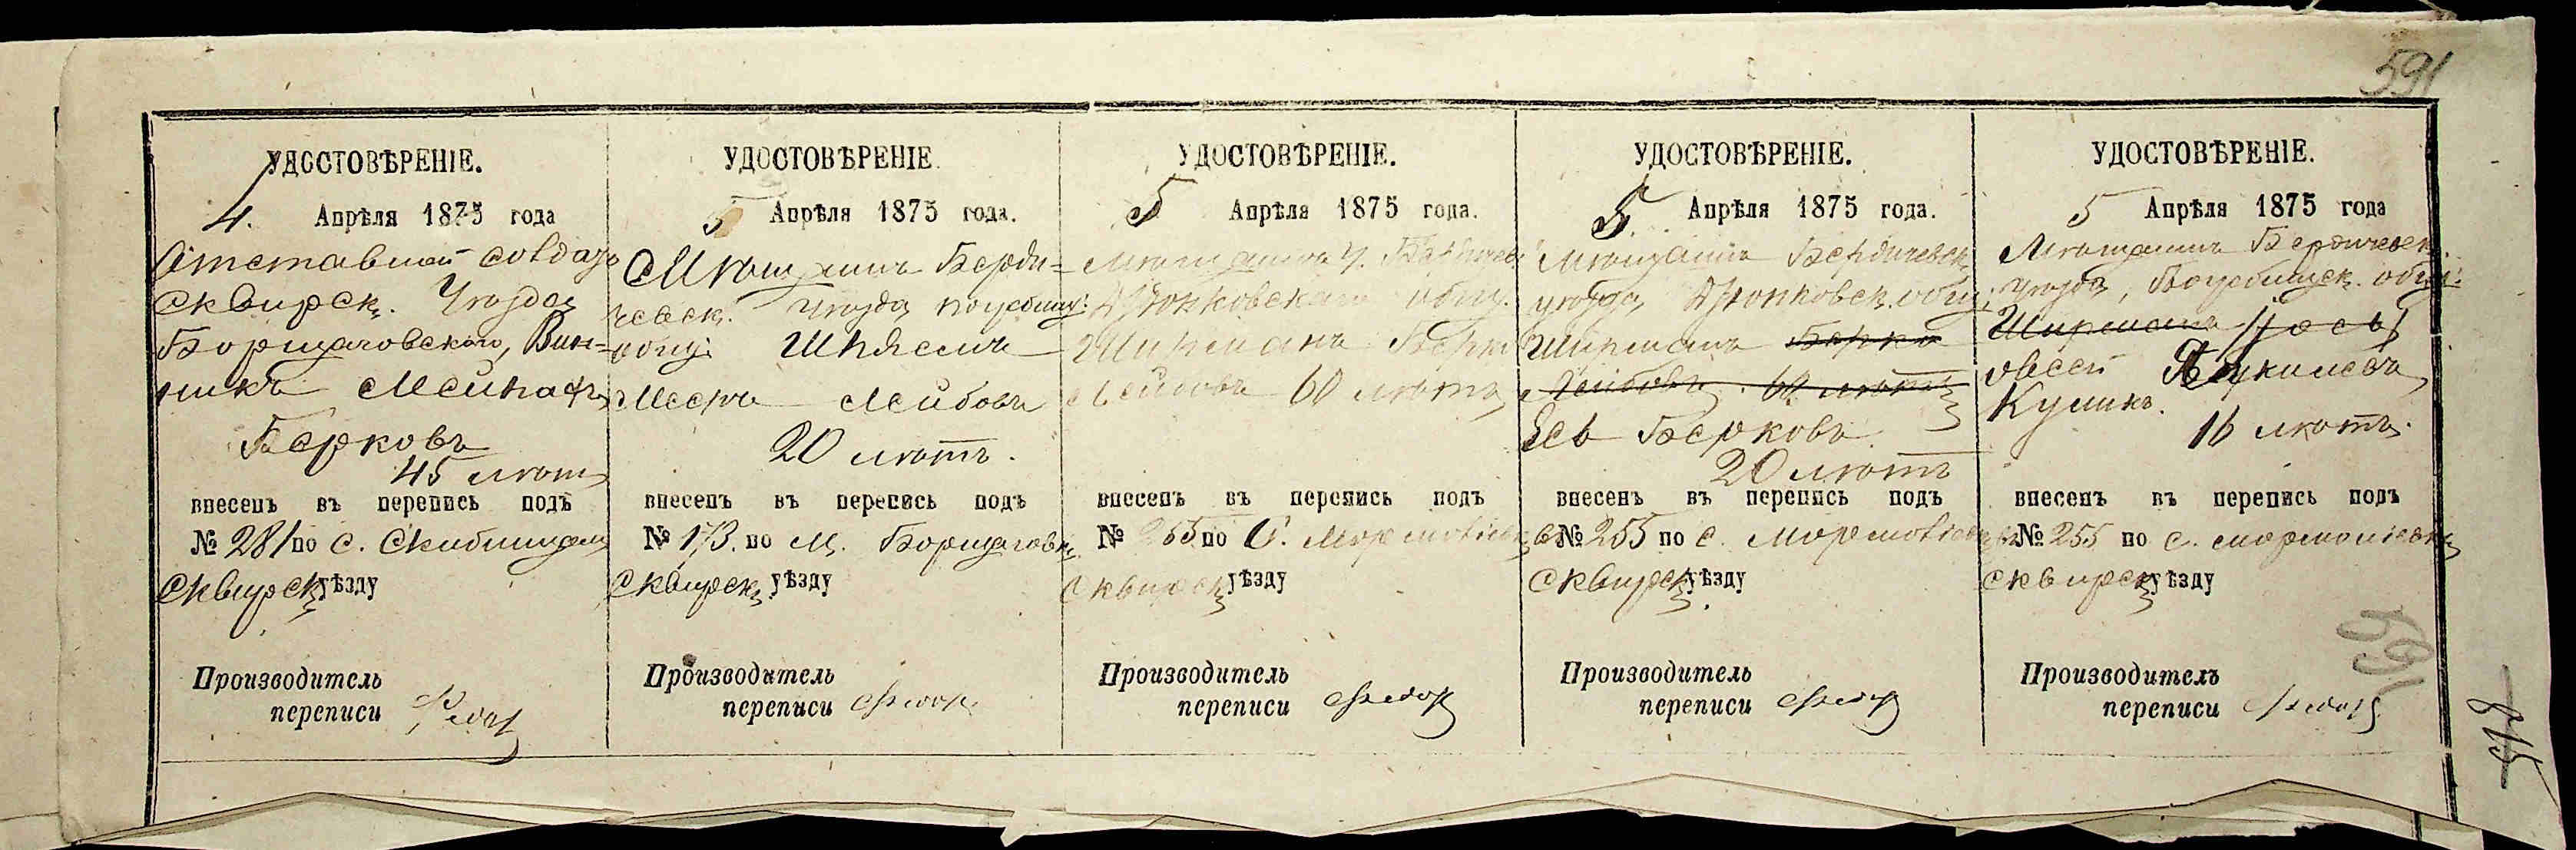 591
УДОСТОВѢРЕНІЕ.
4. Апрѣля 1875 года
Отставной солдатъ
Сквирск. Уѣзда
Борщаговскаго, Вин-
никъ
Берковъ
45 лѣтъ
внесенъ въ перепись подъ
№ 281 по с. Скибинцам
Сквирск уѣзду
Производитель
переписи
УДОСТОВѢРЕНІЕ
5 Апрѣля 1875 года.
Мѣщанинъ Берди-
чевск. уѣзда
общ.
Лейбовъ
20 лѣтъ.
внесенъ въ перепись подъ
№ 173. по м. Борщаговк
Сквирск уѣзду
Производитель
переписи
УДОСТОВѢРЕНІЕ.
5 Апрѣля 1875 года.
Мѣщанинъ у. Бердичев
Дзюнковскаго общ.
Ширманъ Берко
Лейбовъ 60 лѣтъ
внесенъ въ перепись подъ
№ 255 по С.
Сквирск уѣзду
Производитель
переписи
УДОСТОВѢРЕНІЕ.
5. Апрѣля 1875 года.
Мѣщанинъ Бердичевск
уѣзда, Дзюнковск. общ.
Ширманъ Берко
Лейбовъ 60 лѣтъ
Берковъ
20 лѣтъ
внесенъ въ перепись подъ
№ 255 по с.
Сквирск уѣзду
Производитель
переписи
УДОСТОВѢРЕНІЕ.
5 Апрѣля 1875 года
Мѣщанинъ Бердичевск
уѣзда, общ.
Ширманъ
Куликъ.
16 лѣтъ.
внесенъ въ перепись подъ
№ 255 по с.
Сквирск уѣзду
Производитель
переписи
591